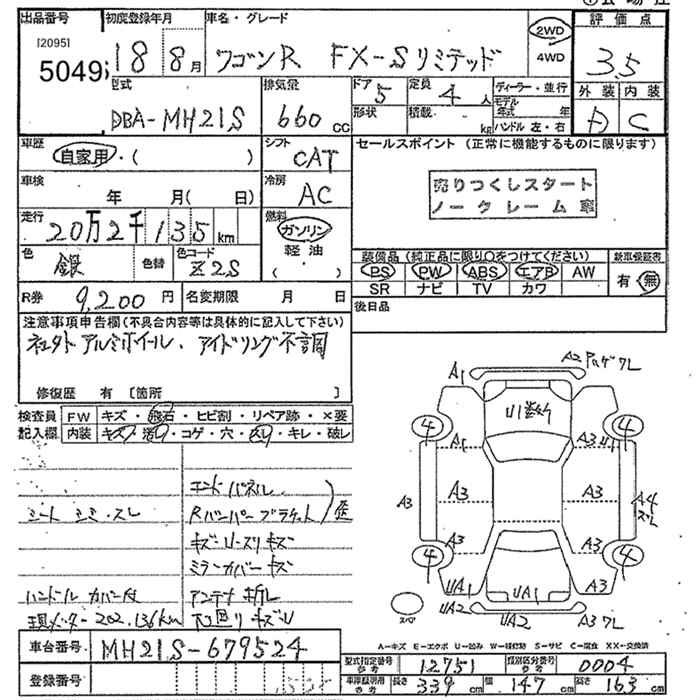 出品番号 初度登録年月 車名・グレード 評価点
[2095]
5049
18 8月 ワゴンR FX-Sリミテッド 2WD 4WD 3.5
型式 DBA-MH21S 排気量 660 CC ドア 5 形状 定員 4 人 積載 kg ディーラー・並行 モデル年式 年 ハンドル 左・右 外装 D 内装 C
車歴 自家用・( ) シフト CAT セールスポイント (正常に機能するものに限ります)
車検 年 月( 日) 冷房 AC
売りつくしスタート
ノークレーム車
走行 20万2千135 km 燃料 ガソリン 軽油 ( ・ )
色 銀 色替 色コード Z2S
装備品 (純正品に限り○をつけてください) 新車保証書
PS PW ABS エアB AW 有・無
SR ナビ TV カワ
R券 9,200 円 名変期限 月 日 後日品
注意事項申告欄 (不具合内容等は具体的に記入して下さい)
アルミホイール、アイドリング不調
修復歴 有 [箇所 ]
検査員 FW キズ・飛石・ヒビ割・リペア跡・×要
記入欄 内装 キズ・汚・コゲ・穴・スレ・キレ・破レ
エンドパネル
シート シミ・スレ Rバンパーブラケット 歪
キズ・U・スリキズ
ミラーカバーキズ
ハンドルカバー付 アンテナ折レ
現メーター202,136km 下回りキズU
A1 A2
U1
4 4
A1 A3 U1
A3 A3 A3 A4 ズレ
A3 A3
4 4
UA1 UA1 A3
スペア UA2 UA2 A3 ズレ
A-キズ E-エクボ U-凹み W-補修跡 S-サビ C-腐食 XX-交換済
車台番号 MH21S-679524
型式指定番号 参考 12751 類別区分番号 参考 0004
登録番号 車庫証明用 参考 長さ 339 cm 幅 147 cm 高さ 163 cm